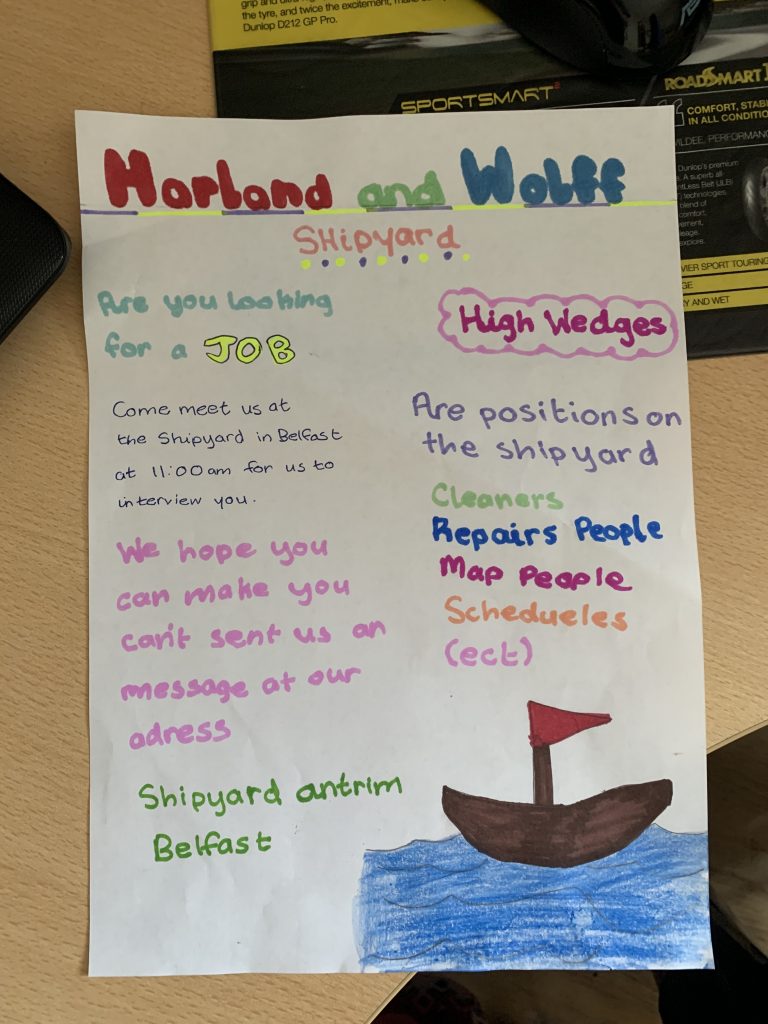 grip and
the tyre, and twice the excitement,
Dunlop D212 GP Pro.
SPORTSMART²
ROADSMART
COMFORT, STAB
IN ALL CONDITIO
WILDEE, PERFORMANC
Dunlop's premium
A superb all-
ntless Belt (JLB)
technologies,
blend of
comfort,
ement,
leage.
explore.
MIER SPORT TOURING
GE
RY AND WET
Harland and Wolff
SHipyard
Are you looking
for a JOB
Come meet us at
the Shipyard in Belfast
at 11:00am for us to
interview you.
We hope you
can make you
can't sent us an
message at our
adress
Shipyard antrim
Belfast
High Wedges
Are positions on
the shipyard
Cleaners
Repairs People
Map People
Schedueles
(ect)